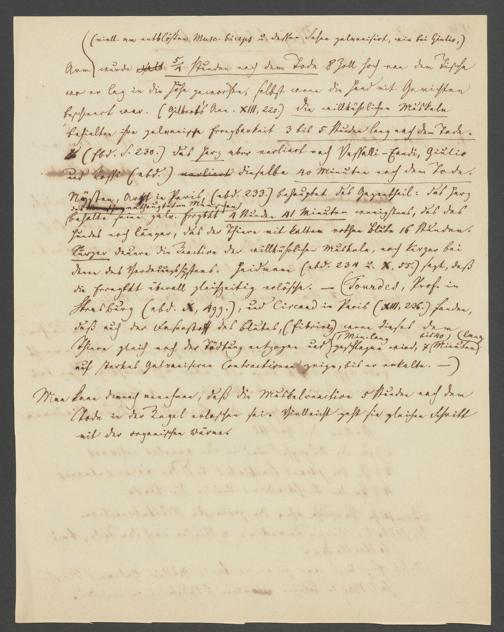 (viell. am entblößten Musc. biceps u. dessen Sehne galvanisirt, wie bei Giulio,)
Arm) wurde 5/4 Stunden nach dem Tode 8 Zoll hoch von dem Tische
wo er lag in die Höhe geworfen, selbst wenn die Hand mit Gewichten
beschwert war. (Gilberts Ann. XIII, 220.) Die willkührlichen Muskeln
behalten ihre galvanische Erregbarkeit 3 bis 5 Stunden lang nach dem Tode.
(Ebd. S. 230.) Das Herz aber verliert nach Vassalli-Eandi, Giulio
und Rossi (ebd.) dieselbe 40 Minuten nach dem Tode.
Nysten, Arzt in Paris (ebd. 233) behauptet das Gegentheil: das Herz
des Menschen
behalte seine galv. Erregbkt 4 Stunden 41 Minuten wenigstens, das des
Hundes noch länger, das der Thiere mit kaltem rothen Blute 16 Stunden.
Kürzer dauere die Reaction der willkührlichen Muskeln, noch kürzer die
denen des Verdauungssystems. Heidmann (ebd. 234 u. X, 55.) sagt, daß
die Erregbkt überall gleichzeitig erlösche. — (Tourdes, Prof. in
Strasburg (ebd. X, 499.), und Circaud in Paris (XIII, 236.) fanden,
daß auch der Faserstoff des Blutes, (Fibrine) wenn dieses dem
Thiere gleich nach der Tödtung entzogen und geschlagen wird, (1 Min. lang bis 40 Minuten) lang
auf starkes Galvanisiren Contractionen zeige, bis er erkalte. —)
Man kann demnach annehmen, daß die Muskelreaction 5 Stunden nach dem
Tode in der Regel erloschen sei. Vielleicht geht sie gleichen Schritt
mit der organischen Wärme.